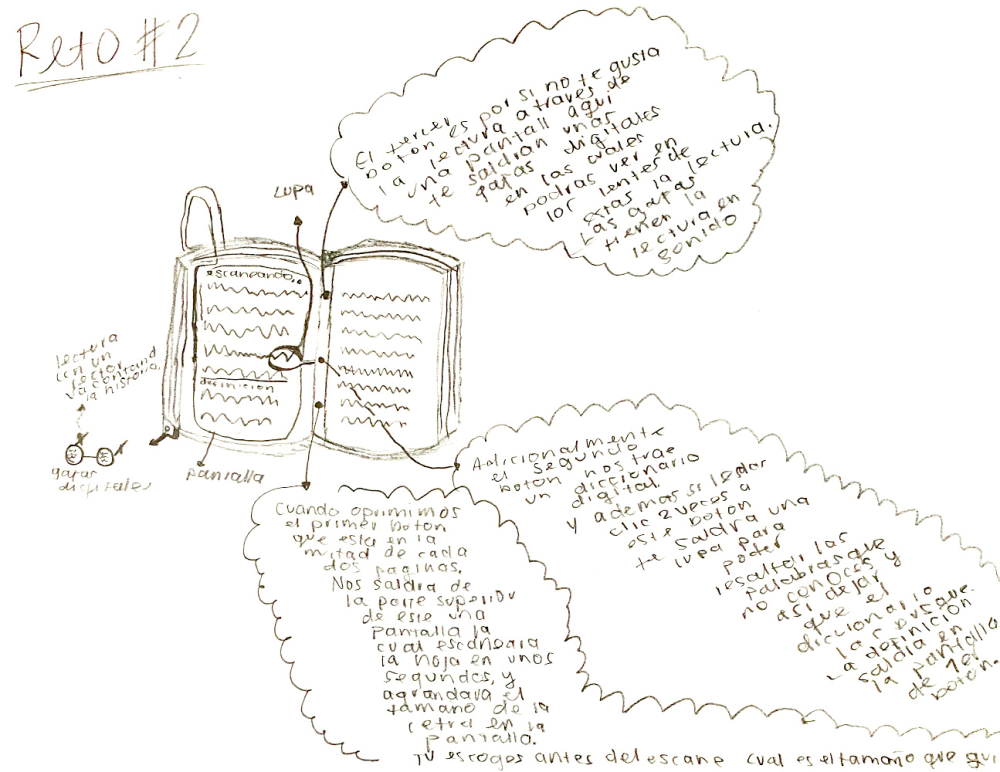 Reto #2
El tercer
boton es por si no te gusta
la lectura a traves de
una pantall aqui
te saldran unas
gafas digitales
en las cuales
podras ver en
los lentes de
estas la lectura.
Las gafas
tienen la
lectura en
sonido
Lupa
•scaneando..
definicion
lectura
con un
lector
va contand
la historia.
gafas
digitales
pantalla
Adicionalmente
el segundo
boton nos trae
un diccionario
digital.
y ademas si les das
clic 2 veces a
este boton
te saldra una
lupa para
poder
resaltar las
palabras que
no conoces y
asi dejar
que el
diccionario
las busque.
La definicion
saldra en
la pantalla
de 1er
boton.
Cuando oprimimos
el primer boton
que esta en la
mitad de cada
dos paginas.
Nos saldra de
la parte superior
de este una
pantalla la
cual escaneara
la hoja en unos
segundos, y
agrandara el
tamaño de la
letra en la
pantalla.
Tu escoges antes del escane cual es el tamaño que